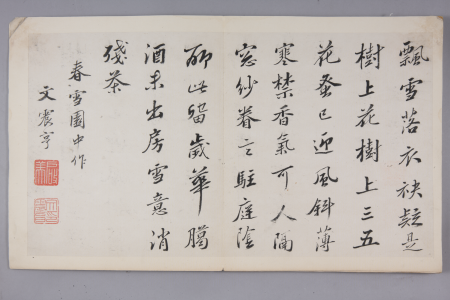 飄雪落衣袂疑是
樹上花樹上三五
花蚤已迎風斜薄
寒禁香氣可人隔
窓紗眷言駐庭陰
聊此留歲華臈
酒未出房雪意消
殘茶
春雪園中作
文震亨